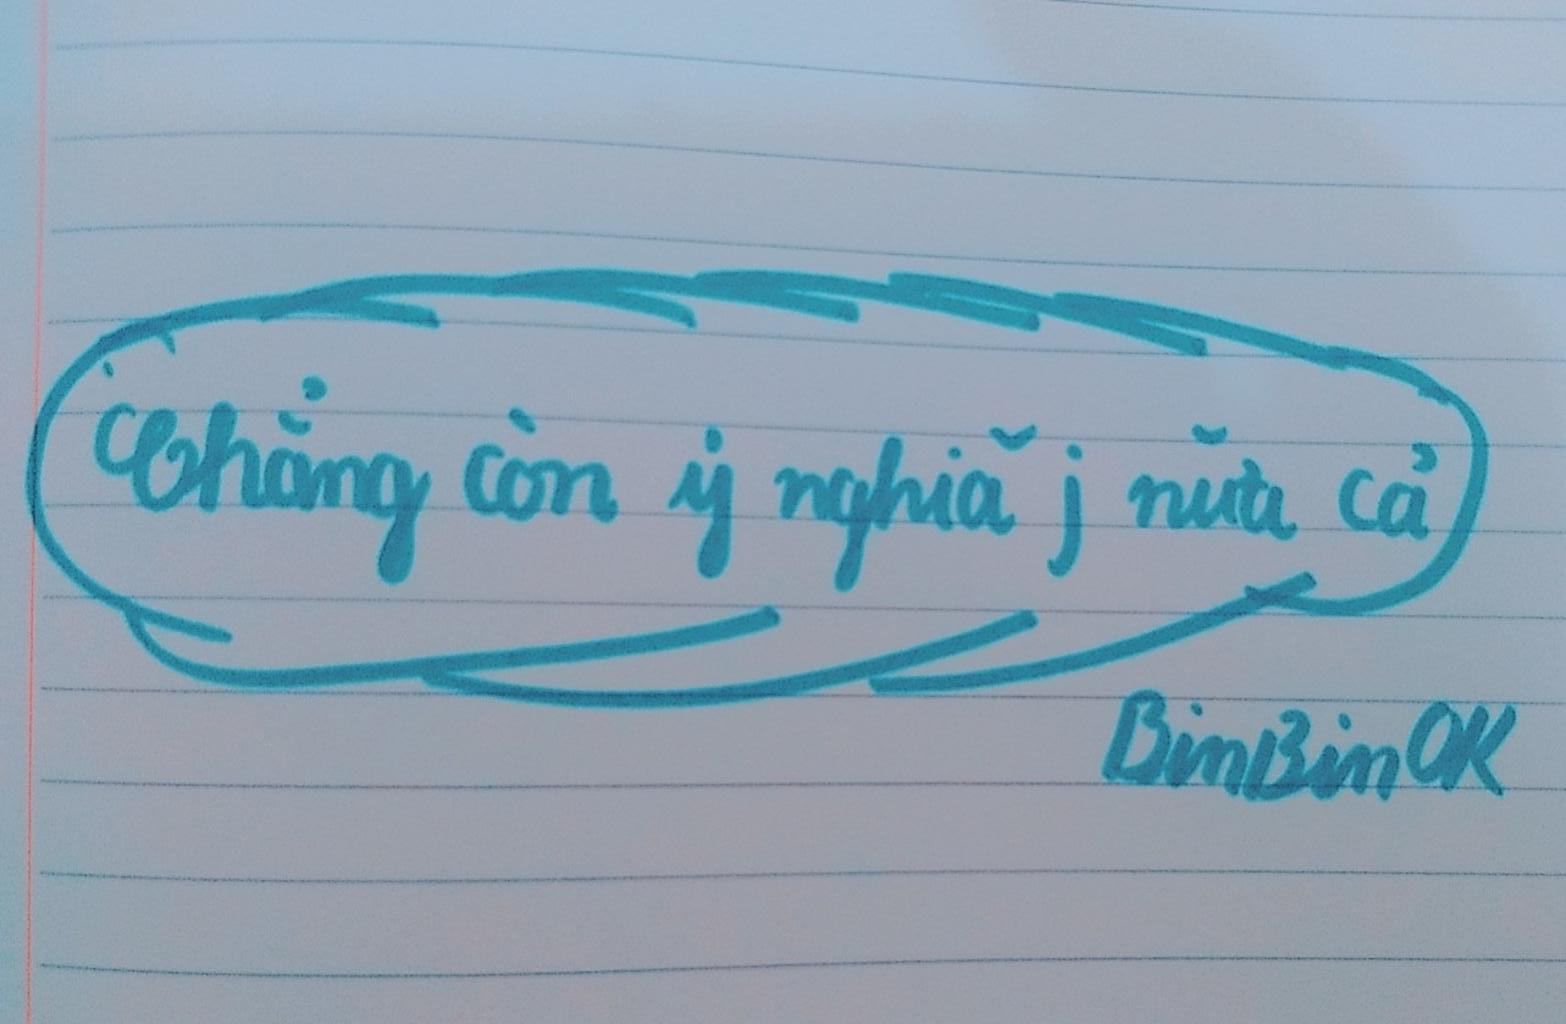 Chẳng còn ý nghĩa j nữa cả
BinBin OK